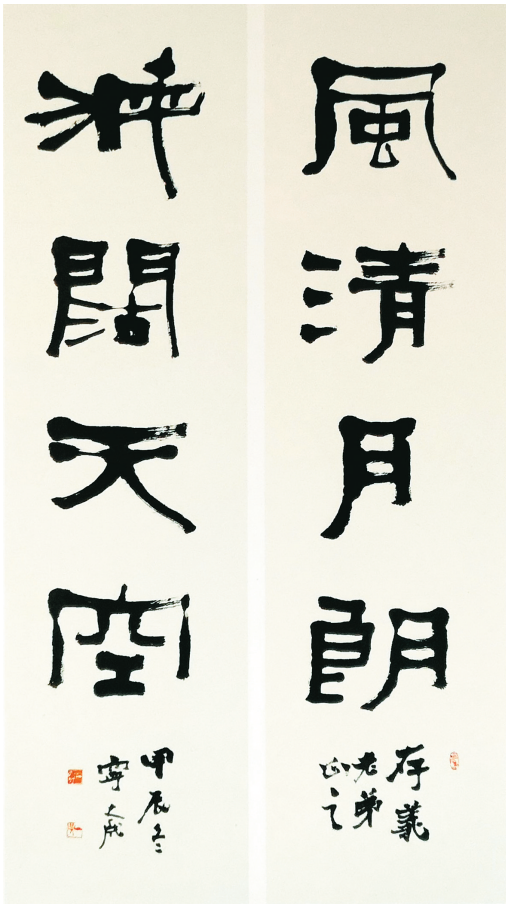 風清月朗
存義
老弟
海闊天空
甲辰冬
寧大成